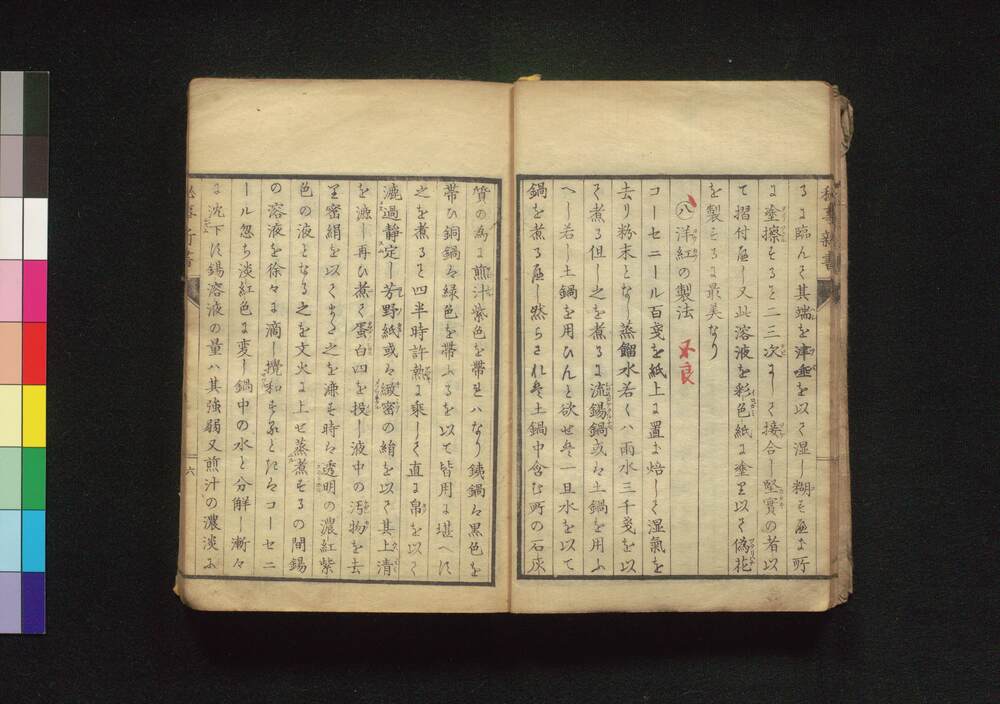 るに臨んで其端を津唾を以て湿し糊すべき所
に塗擦すること二三次にして接合し堅實の者以
て摺付べし又此溶液を彩色紙に塗り以て偽花
を製するに最美なり
八 洋紅の製法 不良
コーセニール百戔を紙上に置き焙して湿氣を
去り粉末となし蒸餾水若くハ雨水三千戔を以
て煮る但し之を煮るに流錫鍋或は土鍋を用ふ
べし若し土鍋を用ひんと欲せば一旦水を以て
鍋を煮るべし然らされば土鍋中含む所の石灰
質の為に煎汁紫色を帯ればなり銕鍋は黒色を
帯ひ銅鍋は緑色を帯ふるを以て皆用に堪へず
之を煮ること四半時許熱に乘して直に帛を以て
漉過静定し芳野紙或は緻密の絹を以て其上清
を漉し再ひ煮て蛋白四を投し液中の汚物を去
り密絹を以てまた之を漉す時は透明の濃紅紫
色の液となる之を文火に上せ蒸煮するの間錫
の溶液を徐々に滴し攪和するときはコーセニ
ール忽ち淡紅色に変し鍋中の水と分解し漸々
に沈下す錫溶液の量ハ其強弱又煎汁の濃淡に
六